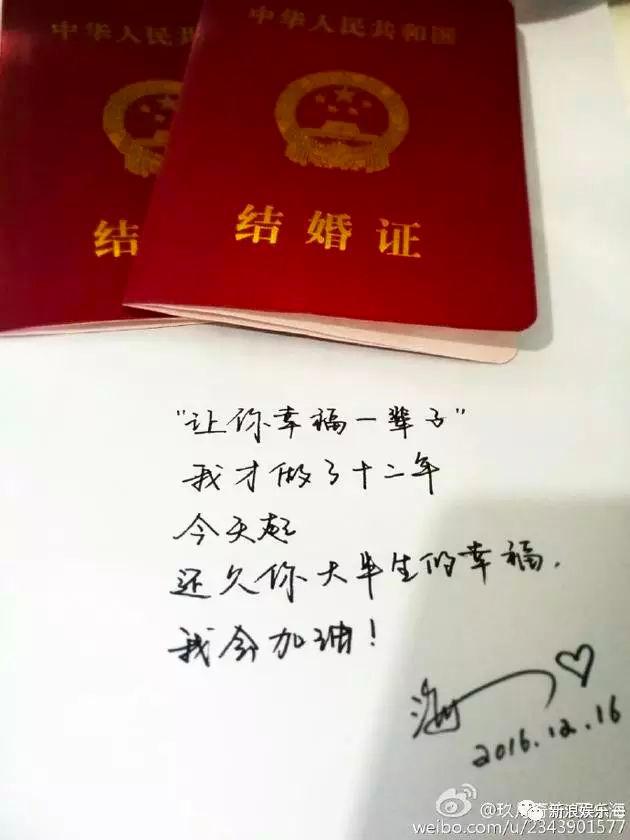 中华人民共
中华人民共和国
结
结婚证
"让你幸福一辈子"
我才做了十二年
今天起
还欠你大半生的幸福.
我会加油!
海
2016.12.16
新浪娱乐海
weibo.com/u/2343901577